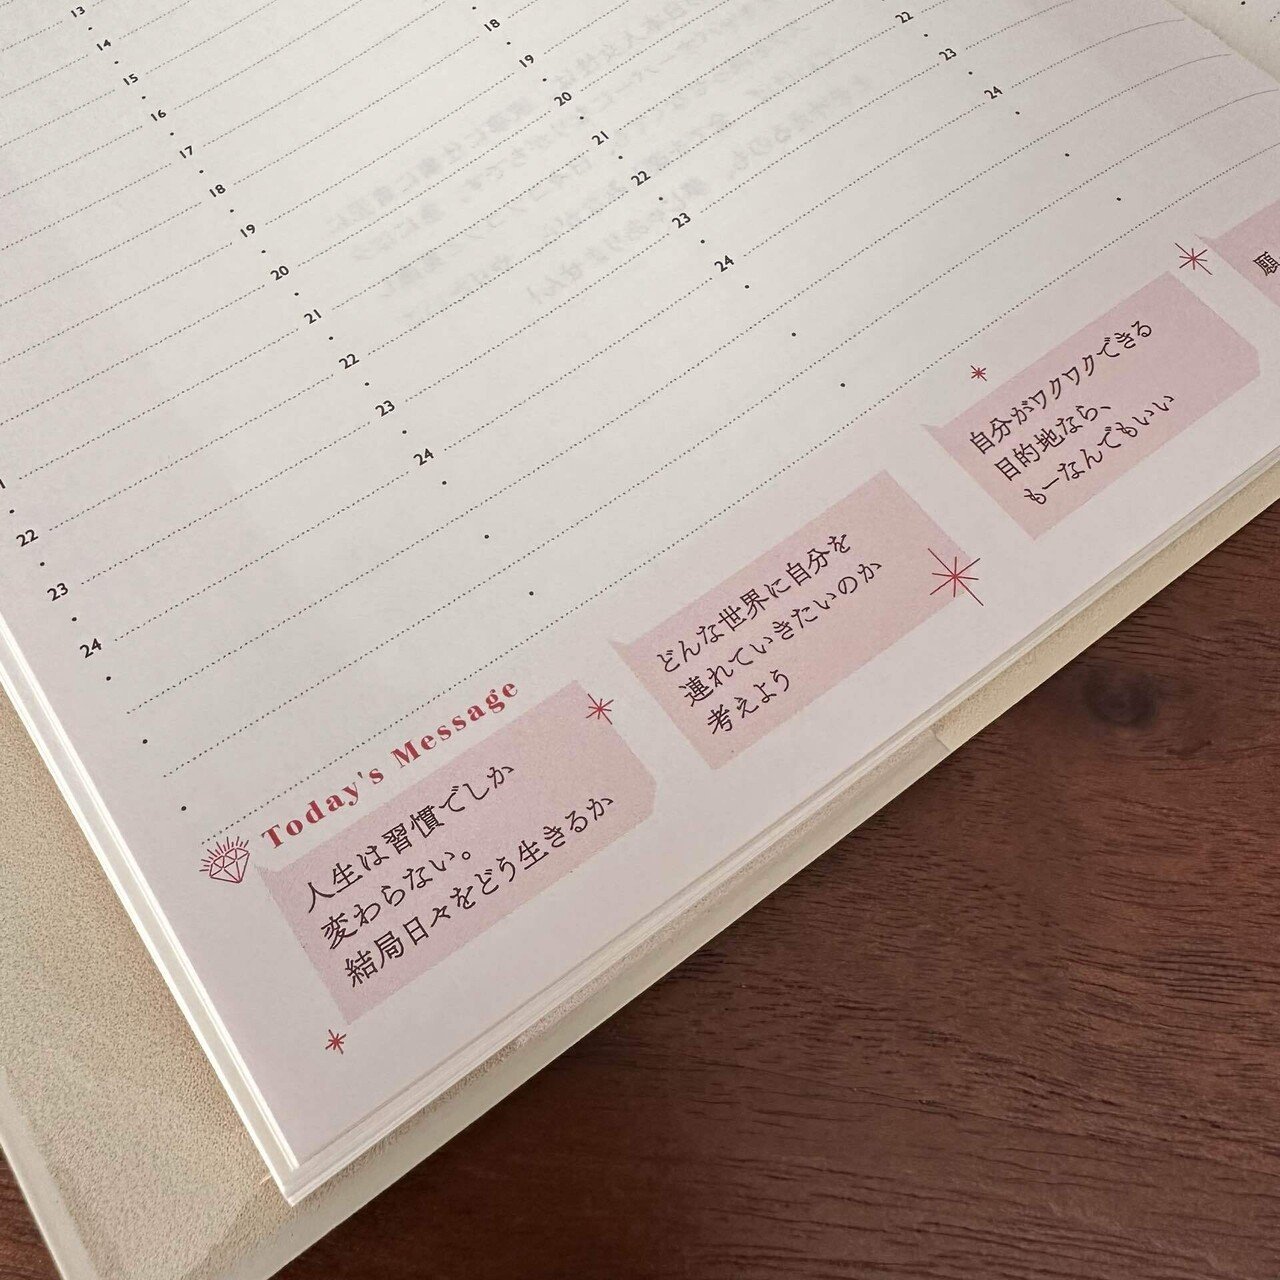 13
14
15
16
17
18
19
20
21
22
23
24
18
19
20
21
22
23
24
22
23
24
22
23
24
Today's Message
人生は習慣でしか
変わらない。
結局日々をどう生きるか
どんな世界に自分を
連れていきたいのか
考えよう
自分がワクワクできる
目的地なら、
もーなんでもいい
願